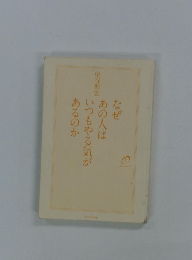 なぜ
あの人は
いつもやる気が
あるのか